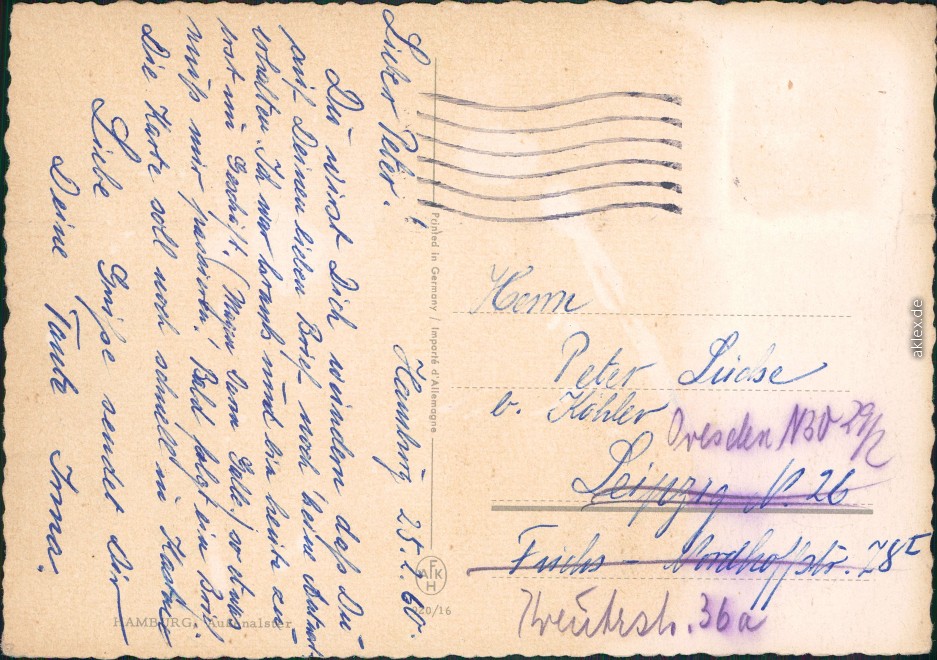 Hamburg 25.2.60.
Lieber Peter!
Du wirst Dich wundern daß Du
auf Deinen lieben Brief noch keine Antwort
erhalten. Ich war krank und bin heute zu-
erst im Geschäft. (Magen Darm Galle!) so etwas
muß mir passieren! Bald folgt ein Brief.
Die Karte soll noch schnell im Kasten
Liebe Grüße sendet Dir
Deine Tante Irma.
Printed in Germany / Importé d'Allemagne
Herrn
Peter Luchse
b. Köhler
Dresden N30 29/2
Leipzig N. 26
Fuchs - Nordhoffstr. 78 I
36a
FAKH
920/16
HAMBURG, Außenalster
aklex.de